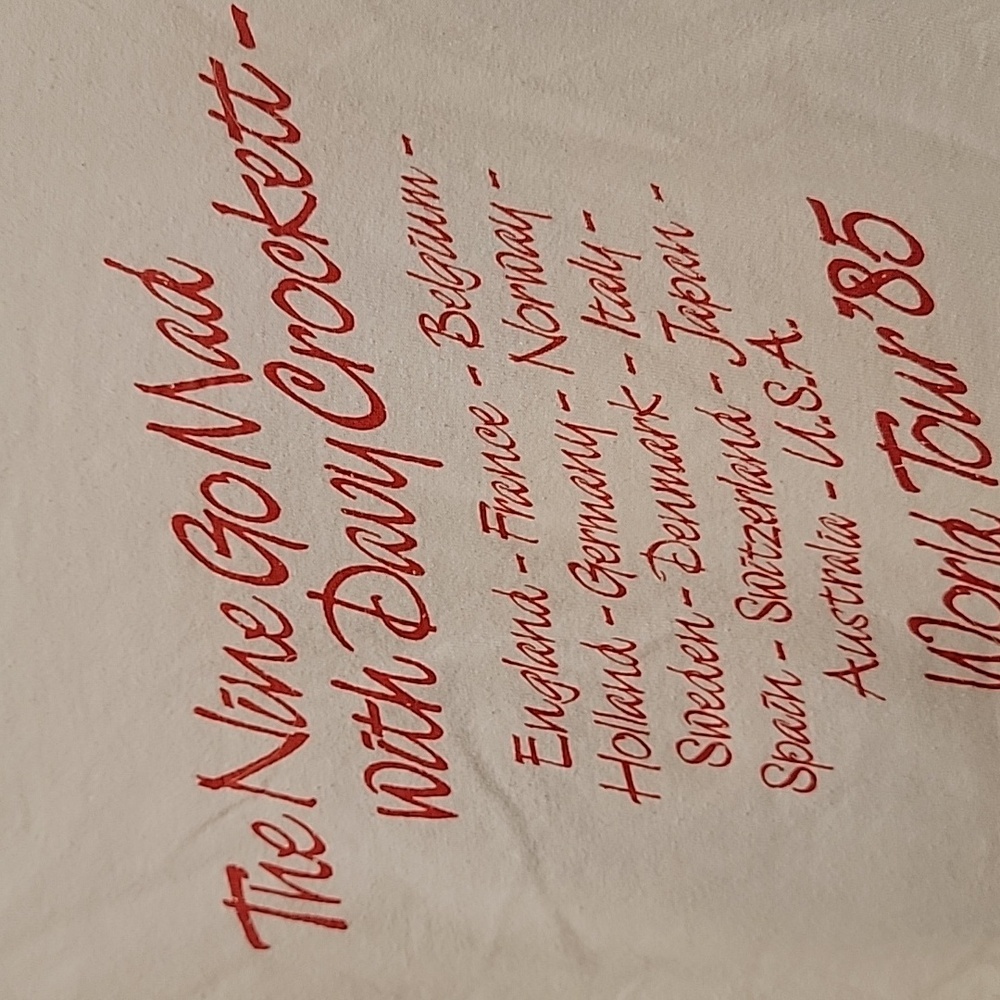 The Nine Go Mad
with Davy Crockett -
England - France - Belgium -
Holland - Germany - Norway -
Sweden - Denmark - Italy -
Spain - Switzerland - Japan -
Australia - U.S.A.
World Tour '85